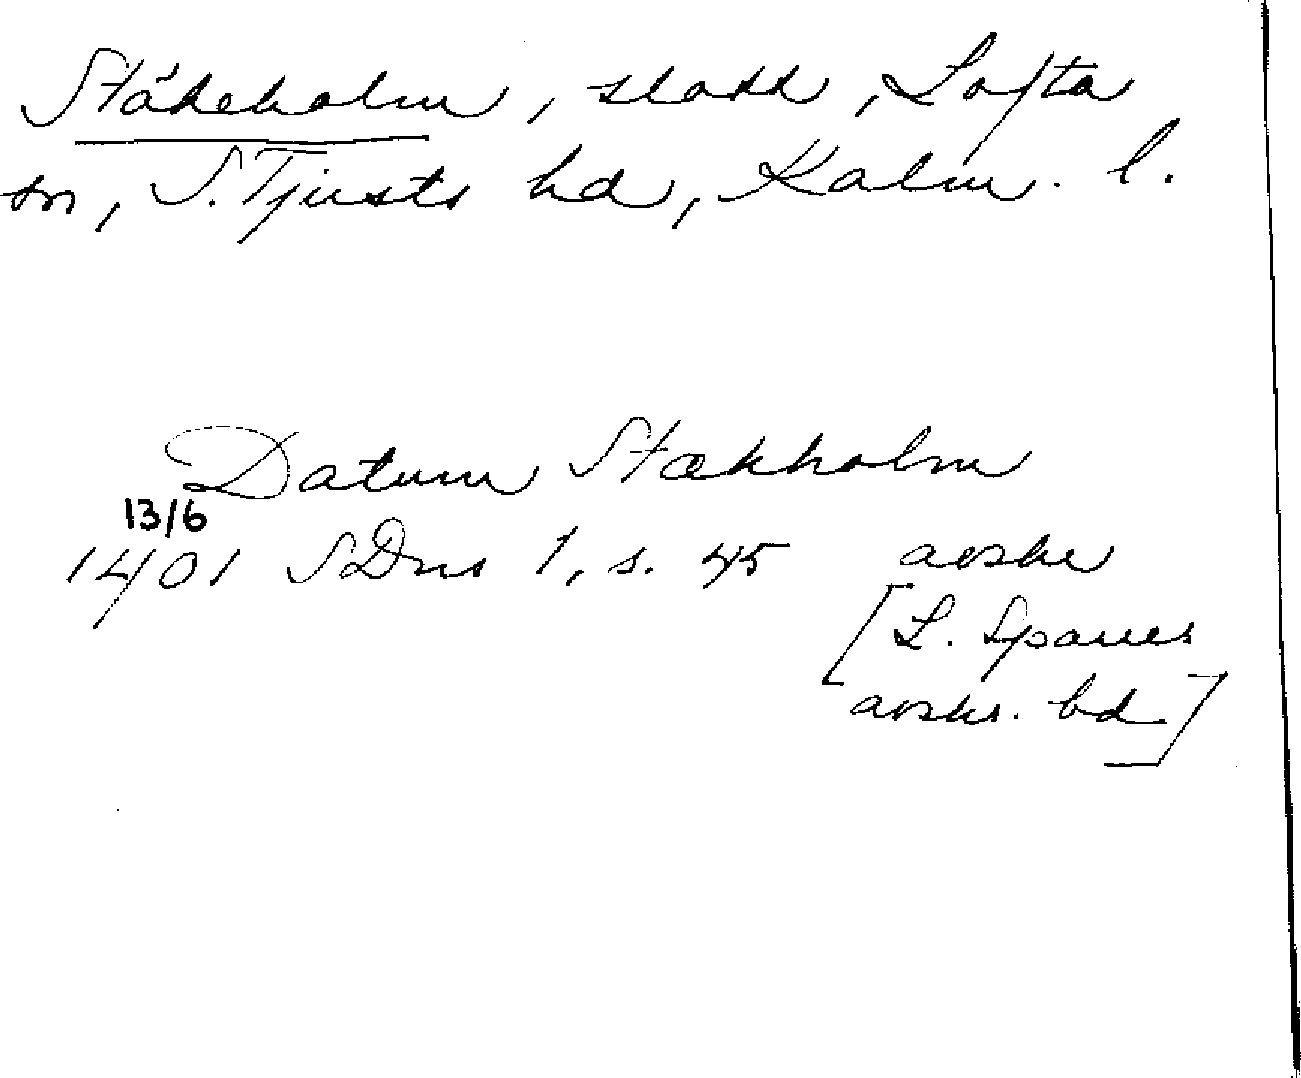 Stäkeholm, slott, Lofta
sn, S. Tjusts hd, Kalm. l.
Datum Stækholm
13/6
1401 SDns 1, s. 45 avskr
[L. Sparres
avskr. bd]